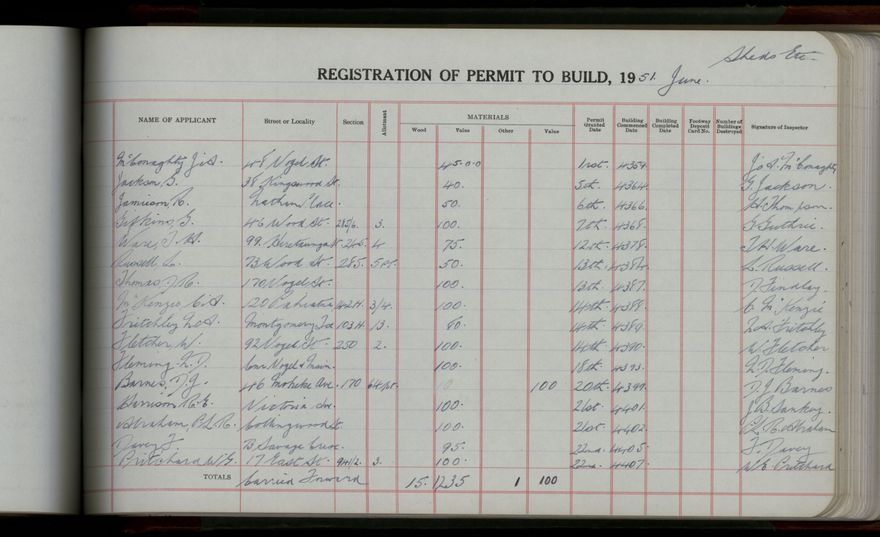 Sheds Etc.
REGISTRATION OF PERMIT TO BUILD, 1951. June.
NAME OF APPLICANT Street or Locality Section Allotment MATERIALS Wood Value Other Value Permit Granted Date Building Commenced Date Building Completed Date Footway Deposit Card No. Number of Buildings Destroyed Signature of Inspector
McConaghty J.A. 408 Vogel St. 45-0-0 1st. 4354. J.A. McConaghty
Jackson, G. 38 Kingswood St. 40. 5th. 4364. G. Jackson.
Jamieson, R. 50. 6th. 4366. Thompson.
Gifkins, G. 46 Wood St. 285/6. 3. 100. 7th. 4368. G. Guthrie.
Ware, J.H. 99. Heretaunga St. 245. 4 75. 12th. 4378. J.H. Ware.
Russell, L. 73 Wood St. 285. 5 pt. 50. 13th. 4384. L. Russell.
Thomas, J.R. 170 Vogel St. 100. 13th. 4387. Findlay.
McKenzie, C.A. 120 Pahiatua 442H. 3/4. 100. 14th. 4388. C. McKenzie
Fritchley, L.A. Montgomery Tce 103H. 13. 80. 14th. 4389. L.A. Fritchley
Fletcher, W. 92 Vogel St. 250 2. 100. 14th. 4390. W. Fletcher
Fleming, L.D. Cnr Vogel & Main. 100. 18th. 4393. L.D. Fleming.
Barnes, D.J. 486 Moheke Ave. 170 10 100 20th. 4399. D.J. Barnes
Harrison R.E. Victoria Ave. 100. 21st. 4401. J.B. Sankey.
Abraham P.L.R. Collingwood St. 100. 21st. 4402. P.L.R. Abraham
Davey F. B. Savage Cres. 95. 22nd. 4405. F. Davey
Pritchard W.G. 17 East St. 941/2. 3. 100. 22nd. 4407. W.G. Pritchard
TOTALS Carried Forward 15. 1235 1 100